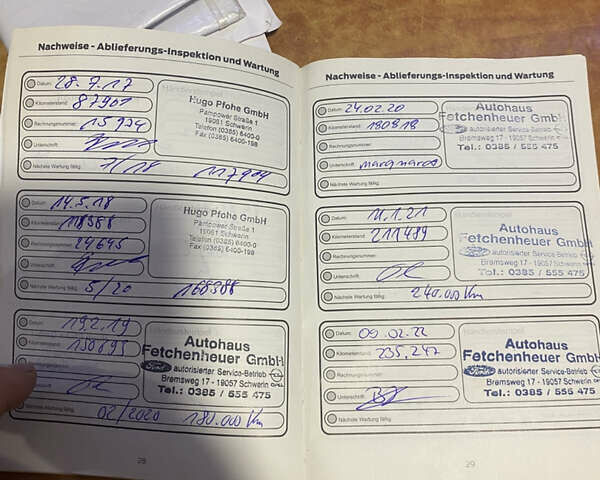 Nachweise - Ablieferungs-Inspektion und Wartung
Datum: 28.7.17
Kilometerstand: 87901
Rechnungsnummer: 15974
Unterschrift:
Nächste Wartung fällig: 7/18 117904
Hugo Pfohe GmbH
Pampower Straße 1
19061 Schwerin
Telefon (0385) 6400-0
Fax (0385) 6400-198
Datum: 14.5.18
Kilometerstand: 118388
Rechnungsnummer: 24695
Unterschrift:
Nächste Wartung fällig: 5/20 168388
Hugo Pfohe GmbH
Pampower Straße 1
19061 Schwerin
Telefon (0385) 6400-0
Fax (0385) 6400-198
Datum: 19.2.19
Kilometerstand: 150895
Nächste Wartung fällig: 02/2020 180.000 Km
Autohaus
Fetchenheuer GmbH
Ford autorisierter Service-Betrieb
Bremsweg 17 - 19057 Schwerin OPEL
Tel.: 0385 / 555 475
28
Nachweise - Ablieferungs-Inspektion und Wartung
Datum: 24.02.20
Kilometerstand: 180818
Rechnungsnummer:
Unterschrift: marquardt
Nächste Wartung fällig:
Autohaus
Fetchenheuer GmbH
autorisierter Service-Betrieb
Bremsweg 17 - 19057 Schwerin
Tel.: 0385 / 555 475
Datum: 11.1.21
Kilometerstand: 211489
Rechnungsnummer:
Unterschrift:
Nächste Wartung fällig: 240.000 Km
Autohaus
Fetchenheuer GmbH
autorisierter Service-Betrieb
Bremsweg 17 - 19057 Schwerin
Tel.: 0385 / 555 475
Datum: 09.02.22
Kilometerstand: 235,247
Rechnungsnummer:
Unterschrift:
Nächste Wartung fällig:
Autohaus
Fetchenheuer GmbH
Ford autorisierter Service-Betrieb
Bremsweg 17 - 19057 Schwerin OPEL
Tel.: 0385 / 555 475
29